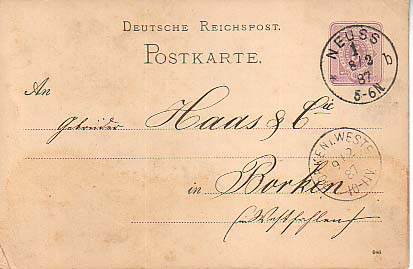 DEUTSCHE REICHSPOST.
POSTKARTE.
NEUSS
1
8/2
87
5-6N
b
An
Gebrüder Haas & Cie
BORKEN I. WESTF.
9/2
87
10-11V
in Borken
(in Westfahlen)